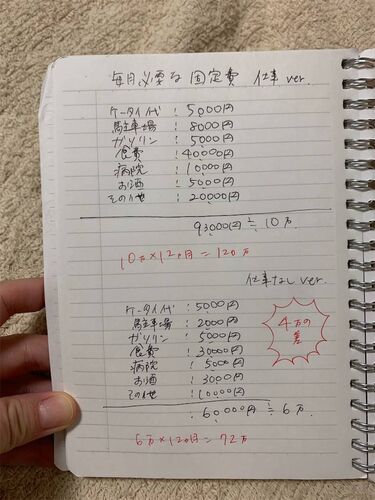 毎月必要な固定費 仕事 ver.
ケータイ代 : 5000円
駐車場 : 8000円
ガソリン : 5000円
食費 : 40000円
病院 : 10000円
お酒 : 5000円
その他 : 20000円
93000円 ≒ 10万
10万×12ヶ月=120万
仕事なし ver.
ケータイ代 : 5000円
駐車場 : 2000円
ガソリン : 5000円
食費 : 30000円
病院 : 5000円
お酒 : 3000円
その他 : 10000円
4万の差
60000円 ≒ 6万
6万×12ヶ月=72万